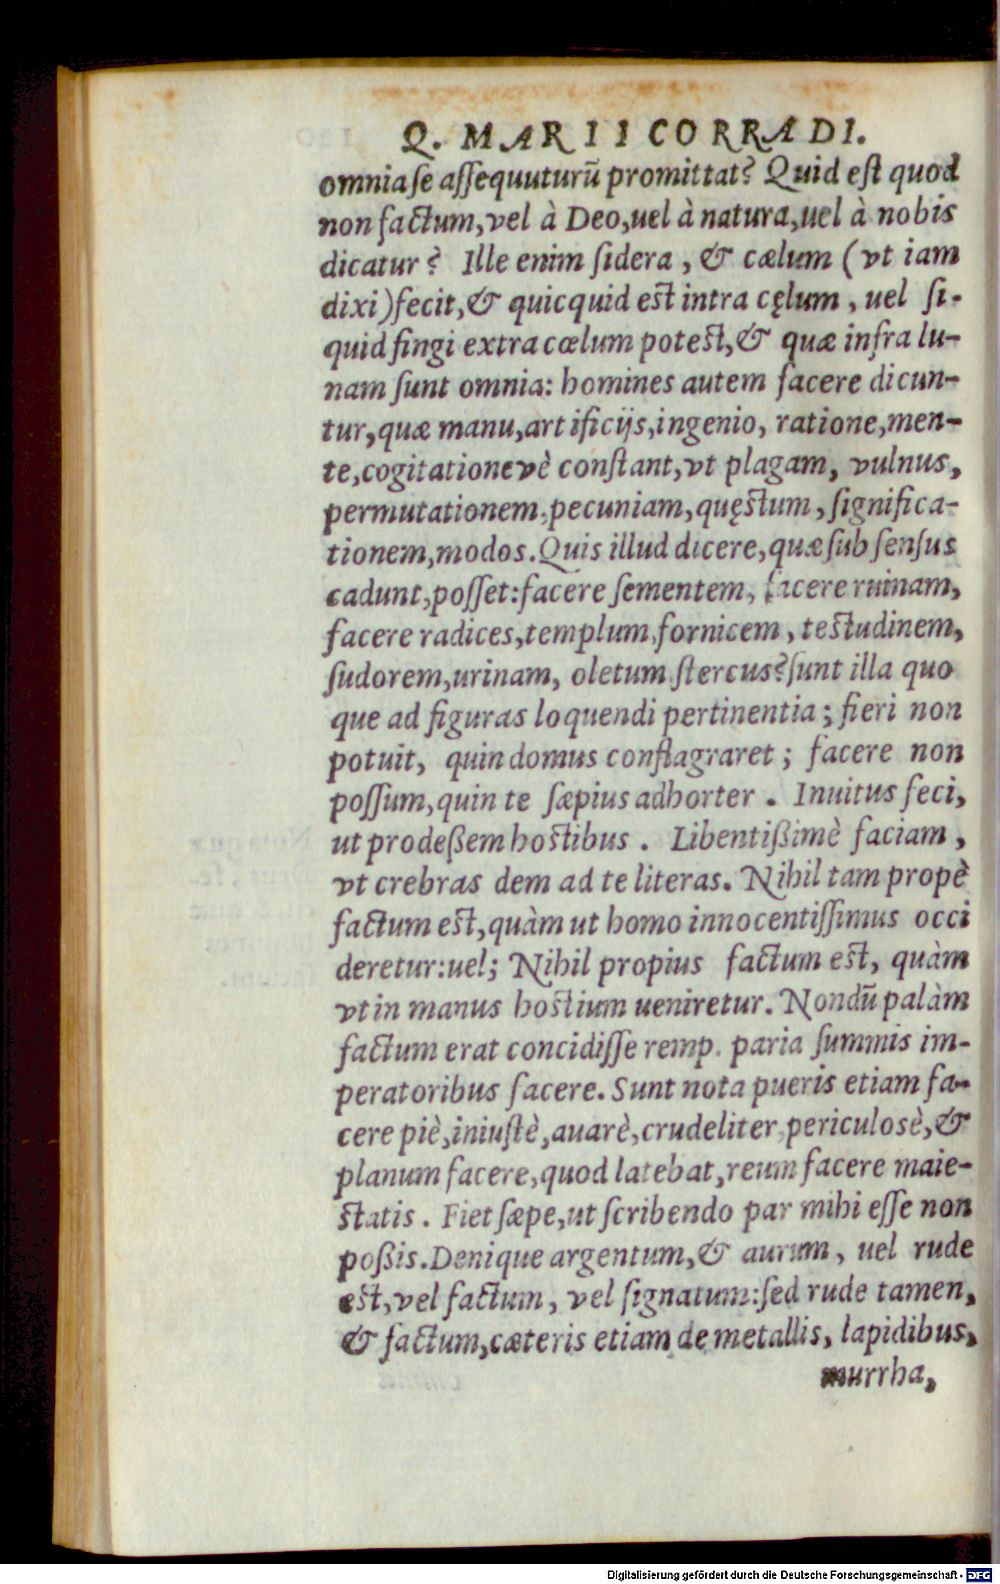 Q. MARII CORRADI.
omnia se aſſequuturū promittat? Quid eſt quod
non factum, vel à Deo, uel à natura, uel à nobis
dicatur? Ille enim ſidera, & cælum (vt iam
dixi) fecit, & quicquid eſt intra cęlum, uel ſi-
quid fingi extra cœlum poteſt, & quæ infra lu-
nam ſunt omnia: homines autem facere dicun-
tur, quæ manu, artificijs, ingenio, ratione, men-
te, cogitatione vè conſtant, vt plagam, vulnus,
permutationem, pecuniam, quęſtum, ſignifica-
tionem, modos. Quis illud dicere, quæ ſub ſenſus
cadunt, poſſet: facere ſementem, facere ruinam,
facere radices, templum, fornicem, teſtudinem,
ſudorem, urinam, oletum ſtercus? ſunt illa quo
que ad figuras loquendi pertinentia; fieri non
potuit, quin domus conflagraret; facere non
poſſum, quin te ſæpius adhorter. Inuitus feci,
ut prodeßem hoſtibus. Libentißimè faciam,
vt crebras dem ad te literas. Nihil tam propè
factum eſt, quàm ut homo innocentiſſimus occi
deretur: uel; Nihil propius factum eſt, quàm
vt in manus hoſtium ueniretur. Nondū palàm
factum erat concidiſſe remp. paria ſummis im-
peratoribus facere. Sunt nota pueris etiam fa-
cere piè, iniuſtè, auarè, crudeliter, periculosè, &
planum facere, quod latebat, reum facere maie-
ſtatis. Fiet ſæpe, ut ſcribendo par mihi eſſe non
poßis. Denique argentum, & aurum, uel rude
eſt, vel factum, vel ſignatum: ſed rude tamen,
& factum, cæteris etiam de metallis, lapidibus,
murrha,
Digitalisierung gefördert durch die Deutsche Forschungsgemeinschaft - DFG